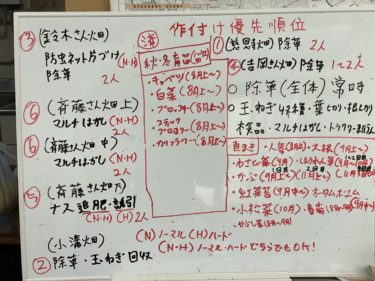 作付け優先順位
③(鈴木さん畑)
防虫ネット片づけ (N・H)
除草 2人
⑥(斉藤さん畑 上)
マルチはがし (N・H)
2人
⑥(斉藤さん畑 中)
マルチはがし (N・H)
2人
⑤(斉藤さん畑 下)
ナス 追肥・誘引
(N・H) (H) 2人
(小溝畑)
② 除草・玉ねぎ回収
済
秋・冬苗
・キャベツ(8月上〜)
・白菜(8月上〜)
・ブロッコリ(8月上〜)
・スティック
ブロッコリー(8月上〜)
・カリフラワー(8月〜)
① 除草 2人
④(吉岡さん畑)除草 1〜2人
○除草(全体)常時
○玉ねぎ 葉切り・根切り
検品・マルチはがし・トラクター
直まき
・人参(8月)・大根(9月上〜)
・わさび菜(9月)・ほうれん草
・かぶ(9月上〜)
・紅菜苔(9月中〜)オータムポエム
・小松菜(10月)
・からし菜
(N)ノーマル (H)ハード
(N・H) ノーマル・ハード どちらでもOK!